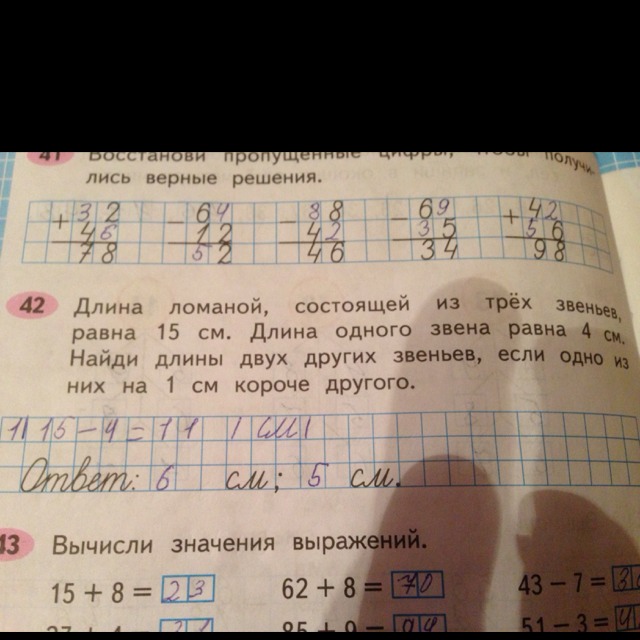 41 Восстанови пропущенные цифры, чтобы получи-
лись верные решения.
+32 −64 −88 −69 +42
46 12 42 35 56
78 52 46 34 98
42 Длина ломаной, состоящей из трёх звеньев,
равна 15 см. Длина одного звена равна 4 см.
Найди длины двух других звеньев, если одно из
них на 1 см короче другого.
1) 15 − 4 = 11 (см)
Ответ: 6 см; 5 см.
43 Вычисли значения выражений.
15 + 8 = 23 62 + 8 = 70 43 − 7 =
85 + 9 = 94 51 − 3 =